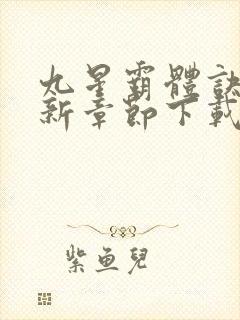 九星霸體訣
新章節下載
紫魚兒